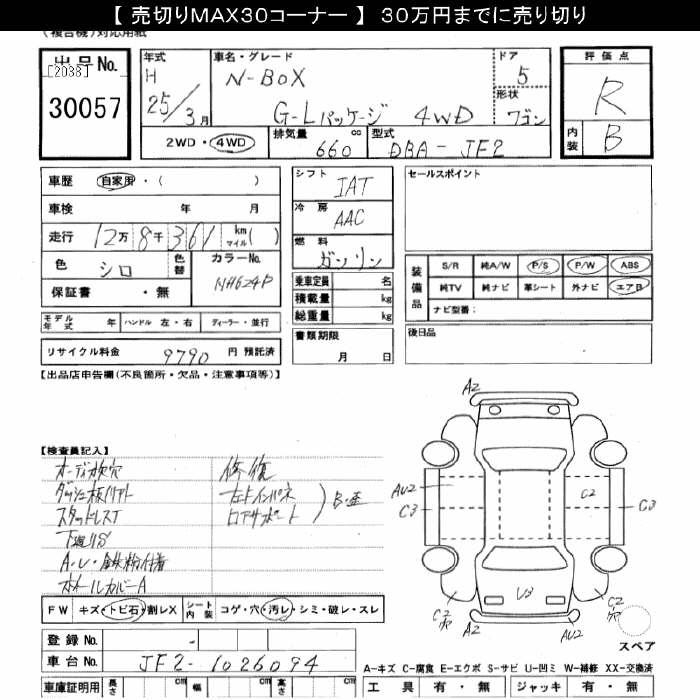 【 売切りMAX30コーナー 】 30万円までに売り切り
(複合機)対応用紙
出品No.
[2038]
30057
年式
H
25/3月
車名・グレード
N-BOX
G-Lパッケージ 4WD
ドア
5
形状
ワゴン
2WD・4WD
排気量 660 cc
型式 DBA-JF2
評価点
R
内装 B
車歴 自家用・( )
車検 年 月
走行 12万8千361 km マイル( )
色 シロ 色替
カラーNo.
NH624P
保証書 ・無
シフト
IAT
冷房
AAC
燃料
ガソリン
乗車定員 名
積載量 kg
総重量 kg
書類期限
月 日
セールスポイント
装備品
S/R 純A/W P/S P/W ABS
純TV 純ナビ 革シート 外ナビ エアB
ナビ型番:
後日品
モデル年式 年 ハンドル 左・右 ディーラー・並行
リサイクル料金 9790 円 預託済
【出品店申告欄(不良箇所・欠品・注意事項等)】
【検査員記入】
オーディオ欠穴
スタッドレスT
下廻りS
A・L・鉄粉付着
ホイールカバーA
修復
左ドインパネ
ロアサポート
B・歪
FW キズ・トビ石・割レX
シート内装 コゲ・穴・汚レ・シミ・破レ・スレ
登録No. -
車台No. JF2-1026094
車庫証明用 長さ cm 幅 cm 高さ cm
A2
AU2
C3
C2
C3
V3
C2
穴
C2
穴
A2
AU2
スペア
A-キズ C-腐食 E-エクボ S-サビ U-凹ミ W-補修 XX-交換済
工具 有・無 ジャッキ 有・無